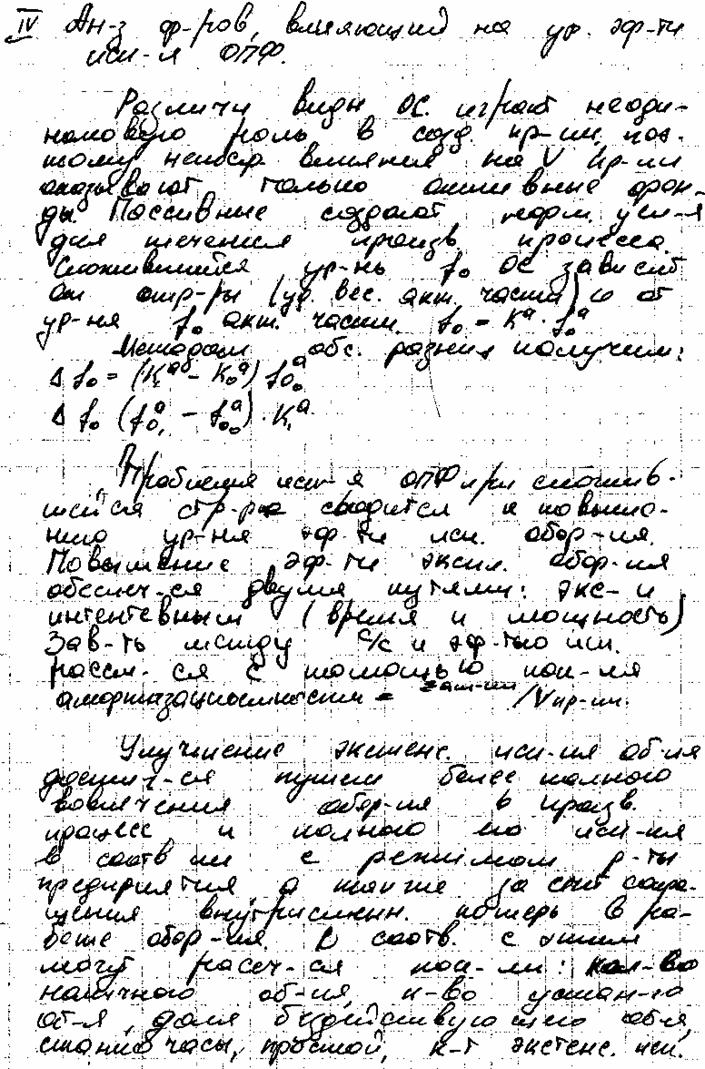 IV Ан-з ф-ров, влияющий на ур. эф-ти
исп-я ОПФ.
Различн виды ОС играют неоди-
наковую роль в созд. пр-ии, поэ-
тому непоср. влияния на V пр-ии
оказывают только активные фон-
ды. Пассивные создают норм. усл-я
для течения произв. процесса.
Сложившийся ур-нь fo ОС зависит
от стр-ры (уд. вес. акт. части) и от
ур-ня fo акт. части. fo = Kª · foª
Методом абс. разниц получим:
Проблема исп-я ОПФ при сложив-
шейся стр-ре сводится к повыше-
нию ур-ня эф-ти исп. обор-ия.
Повышение эф-ти экспл. обор-ия
обеспеч-ся двумя путями: экс- и
интентевным (время и мощность)
Зав-ть между с/с и эф-тью исп.
рассм-ся с помощью пок-ля
амортизациоемкости = Σам-ии /Vпр-ии.
Улучшение экстенс. исп-ия об-ия
достиг-ся путем более полного
вовлечения обор-ия в произв.
процесс и полного его исп-ия
в соотв ии с режимом р-ты
предприятия а также за счет сокра-
щения внутрисменн. потерь в ра-
боте обор-ия. В соотв. с этим
могут рассч-ся пок-ли: кол-во
наличного об-ия, к-во устан-го
об-я, доля бездействующего об-я,
станко часы, простой, к-т экстенс. исп.